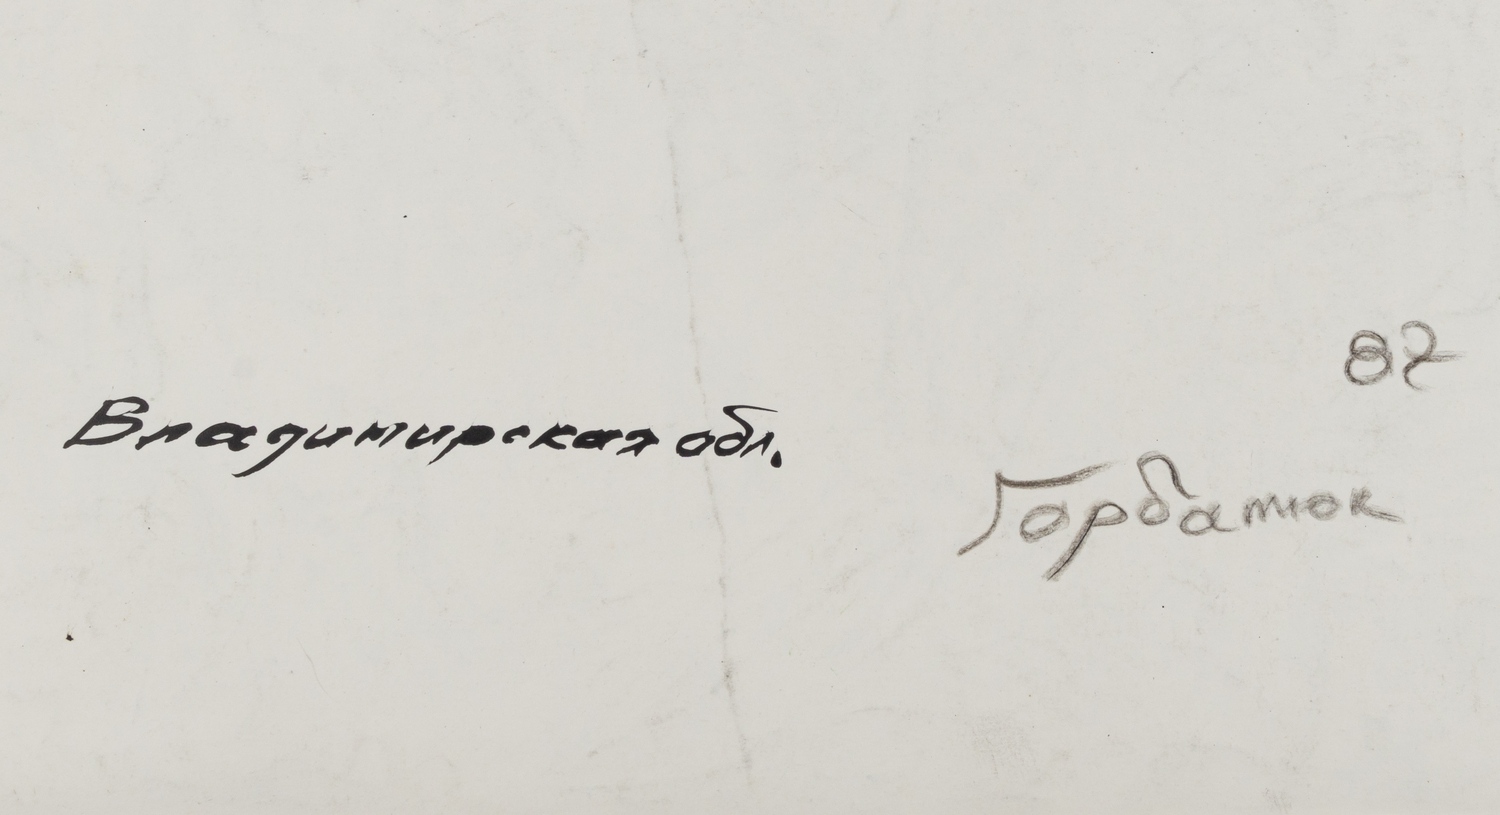 87
Владимирская обл.
Горбатюк